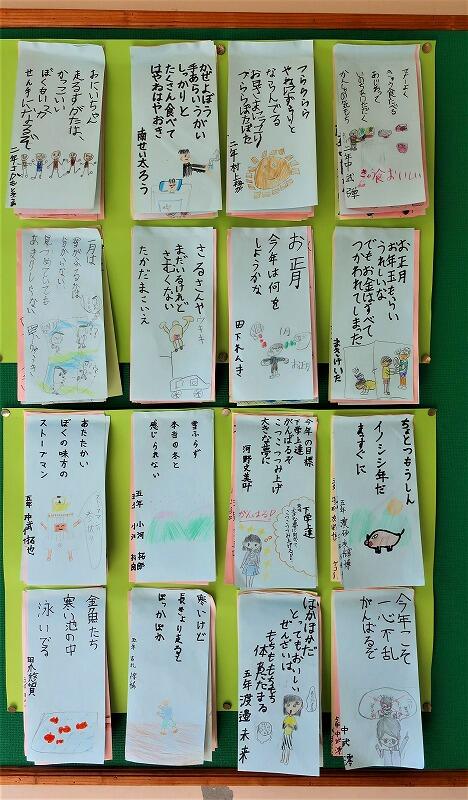 きゅう食たべる
きゅう食おいしい
つらららら
やねにずらりと
ならんでる
お日さまにっこり
つららぽたぽた
かぜよぼう
手あらいうがい
しっかりと
たくさん食べて
はやねはやおき
南せい太ろう
おにいちゃん
走るすがたは、
かっこいい
ぼくもいつか
せん手になるぞ
お正月
お年玉もらい
うれしいな
でもお金はすべて
つかわれてしまった
まきけいた
お正月
今年は何を
しようかな
田下れんき
さるさんや
まだいるけれど
さむくない
一月は
雪がふるかは
分からない
見つめていても
あまりふらない
ちょとつもうしん
イノシシ年だ
まっすぐに
五年
今年の目標
下学上達
がんばるぞ
こつこつつみ上げ
大きな夢に
がんばるぞ
下学上達
雪ふらず
本当の冬と
感じられない
五年 小河 拓郎
あたたかい
ぼくの味方の
ストーブマン
五年
今年こそ
一心不乱
がんばるぞ
ほかほかだ
とってもおいしい
ぜんざいは、
もちもちもちもち
体あたたまる
五年 渡邊 未来
寒いけど
長きょり走ると
ぽっかぽか
五年
金魚たち
寒い池の中
泳いでる